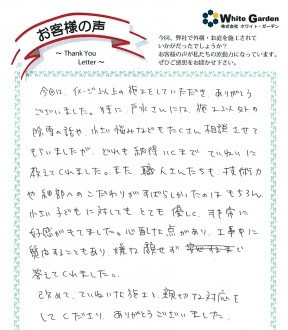 お客様の声
～ Thank You
Letter ～
White Garden
株式会社 ホワイト・ガーデン
今回、弊社で外構・お庭を施工されて
いかがだったでしょうか？
お客様の声が私たちの原動力になっています。
ぜひご感想をお聞かせ下さい。
今回は、イメージ以上の施工をしていただき、ありがとう
ございました。特に、戸水さんには、施工以外の
除雪の話や、小さい悩みなどもたくさん相談させて
もらいましたが、どれも納得いくまで ていねいに
教えてくれました。また、職人さんたちも、技術力
や細部へのこだわりがすばらしかったのは もちろん、
小さい子どもに対しても とても優しく、非常に
好感がもてました。心配した点があり、工事中に
質問することもあり、嫌な顔せず
答えてくれました。
改めて、ていねいな施工と、親切な対応を
してくださり、ありがとうございました。